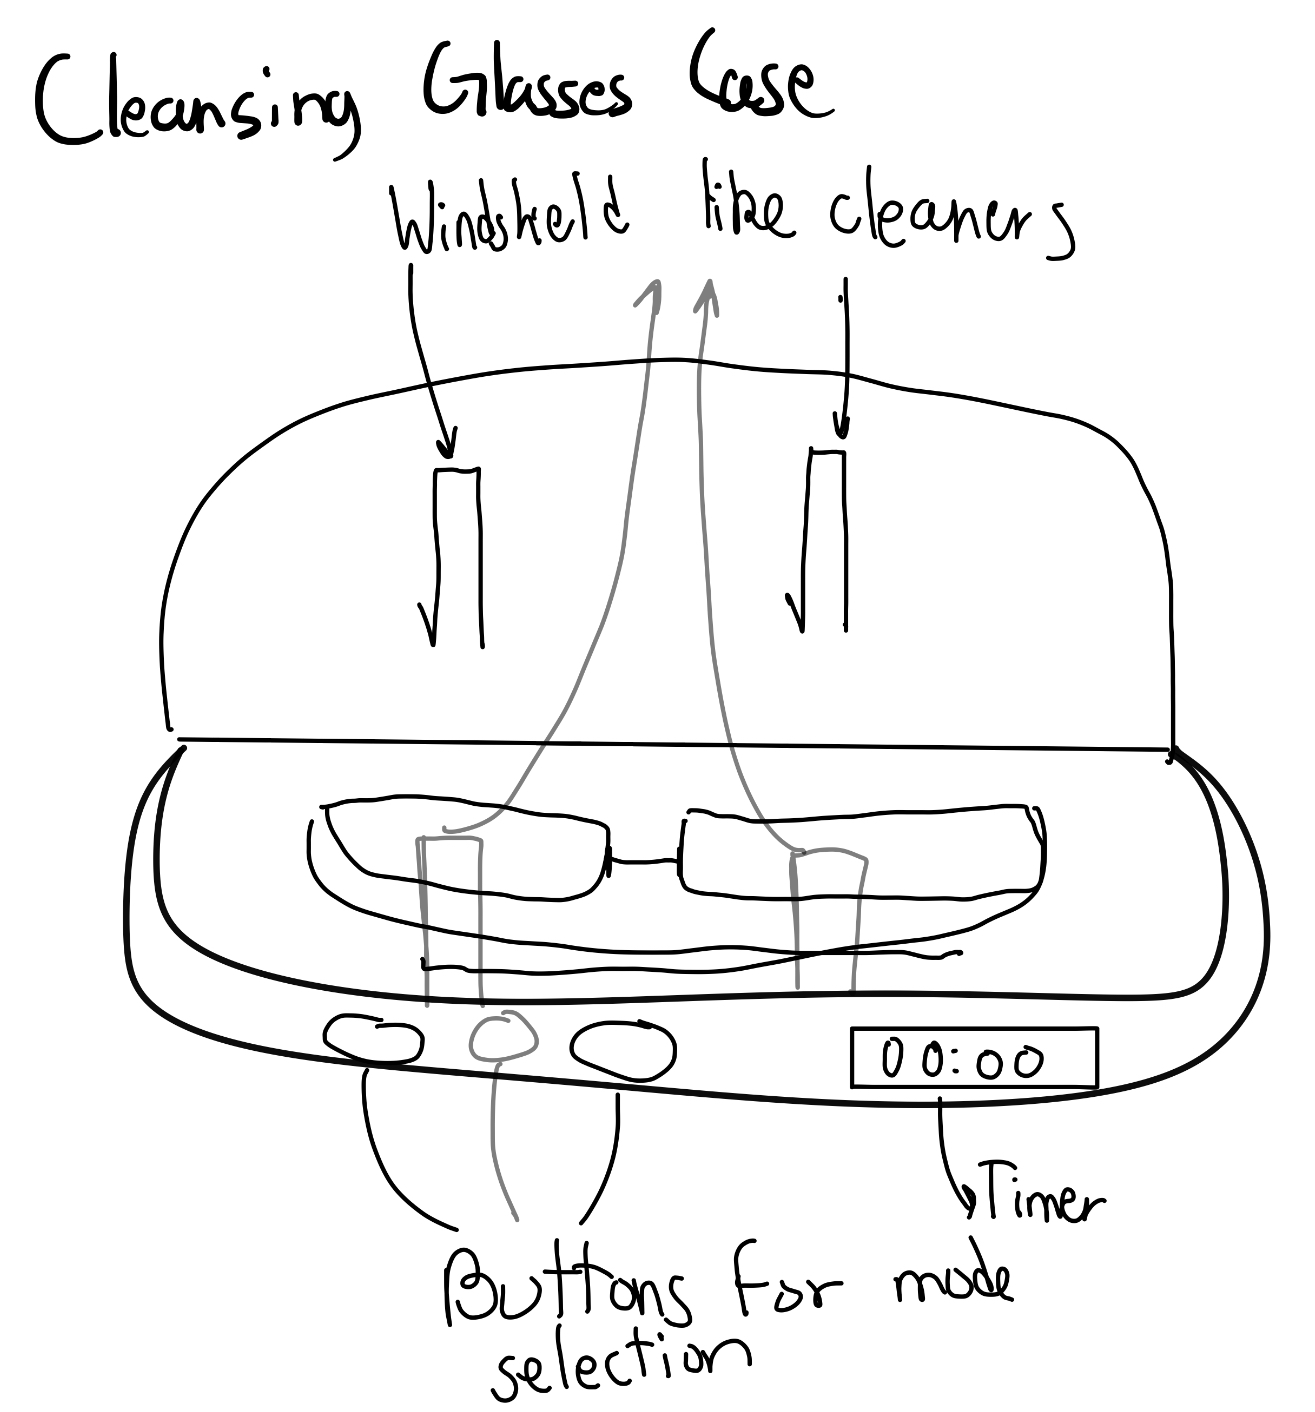 Cleansing Glasses Case
Windsheld like cleaners
00:00
Timer
Buttons for mode
selection